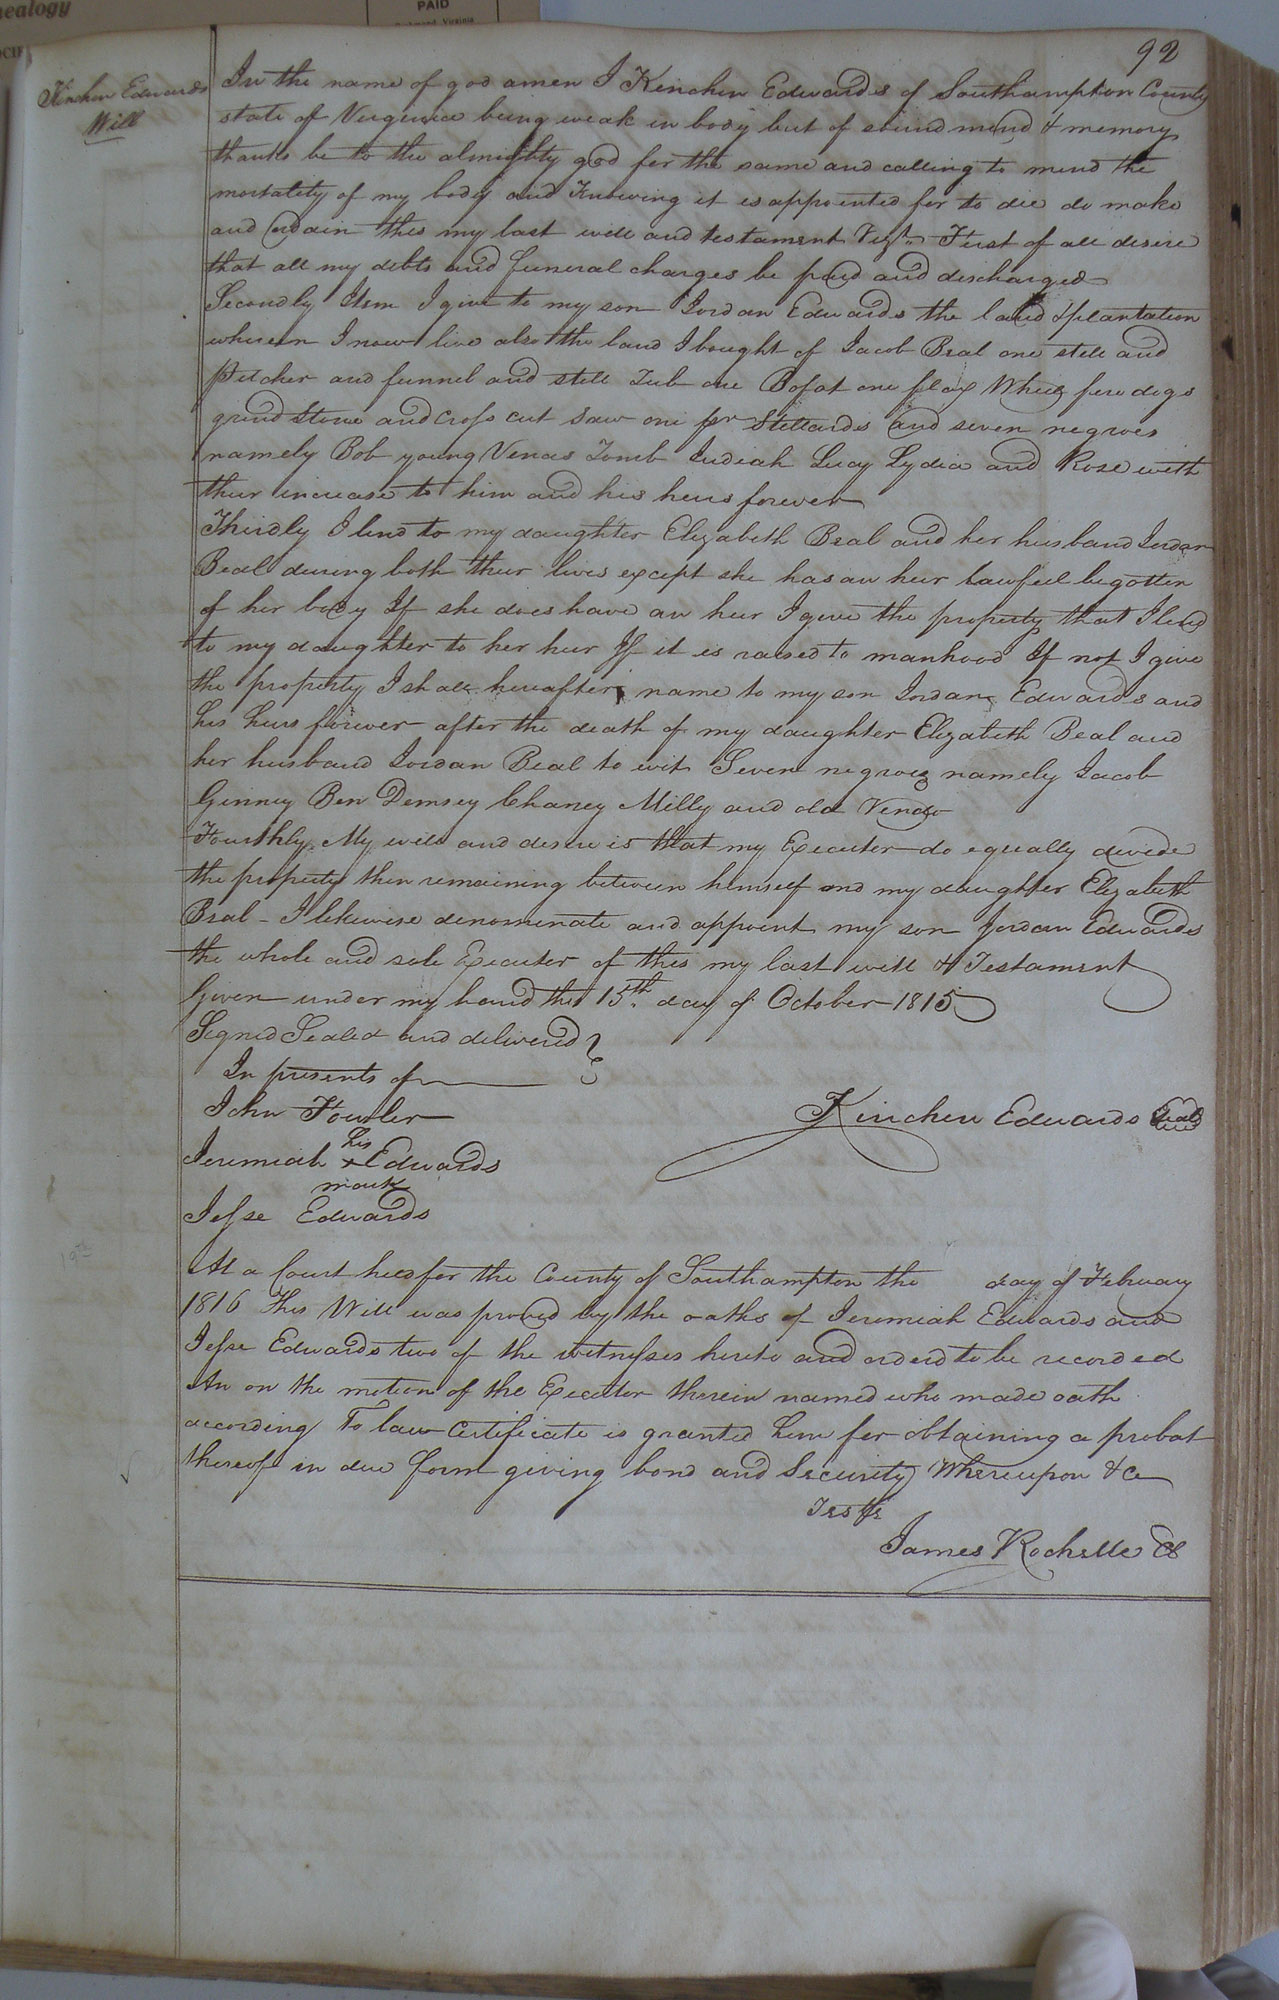 nealogy
PAID
Richmond, Virginia
92
Kinchen Edwards
Will
In the name of god amen I Kinchen Edwards of Southampton County
state of Virginia being weak in body but of sound mind & memory
thanks be to the almighty god for the same and calling to mind the
mortality of my body and Knowing it is appointed for to die do make
and ordain this my last will and testament Viz First of all desire
that all my debts and funeral charges be paid and discharged
Secondly Item I give to my son Jordan Edwards the land & plantation
wherein I now live also the land I bought of Jacob Beal one still and
Pitcher and funnel and still Tub one Bofat one flax Wheel fire dogs
grind Stone and cross cut saw one pr Stillards and seven negroes
namely Bob young Venus Tomb Judeah Lucy Lydia and Rose with
their increase to him and his heirs forever
Thirdly I lend to my daughter Elizabeth Beal and her husband Jordan
Beal during both their lives except she has an heir lawful begotten
of her body If she does have an heir I give the property that I lend
to my daughter to her heir If it is raised to manhood If not I give
the property I shall hereafter name to my son Jordan Edwards and
his heirs forever after the death of my daughter Elizabeth Beal and
her husband Jordan Beal to wit Seven negroes namely Jacob
Ginney Ben Demsey Chaney Milly and old Venus
Fourthly My will and desire is that my Executer do equally devide
the property then remaining between himself and my daughter Elizabeth
Beal - I likewise denominate and appoint my son Jordan Edwards
the whole and sole Executer of this my last will & Testament
Given under my hand this 15th day of October 1815
Signed Sealed and delivered
In presents of
John Fowler
Kinchen Edwards Seal
his
Jeremiah + Edwards
mark
Jesse Edwards
19th
At a Court held for the County of Southampton the day of February
1816 This Will was proved by the oaths of Jeremiah Edwards and
Jesse Edwards two of the witnesses hereto and orderd to be recorded
An on the motion of the Executor therein named who made oath
according To law Certificate is granted him for obtaining a probat
thereof in due form giving bond and Security Whereupon &c
Teste
James Rochelle